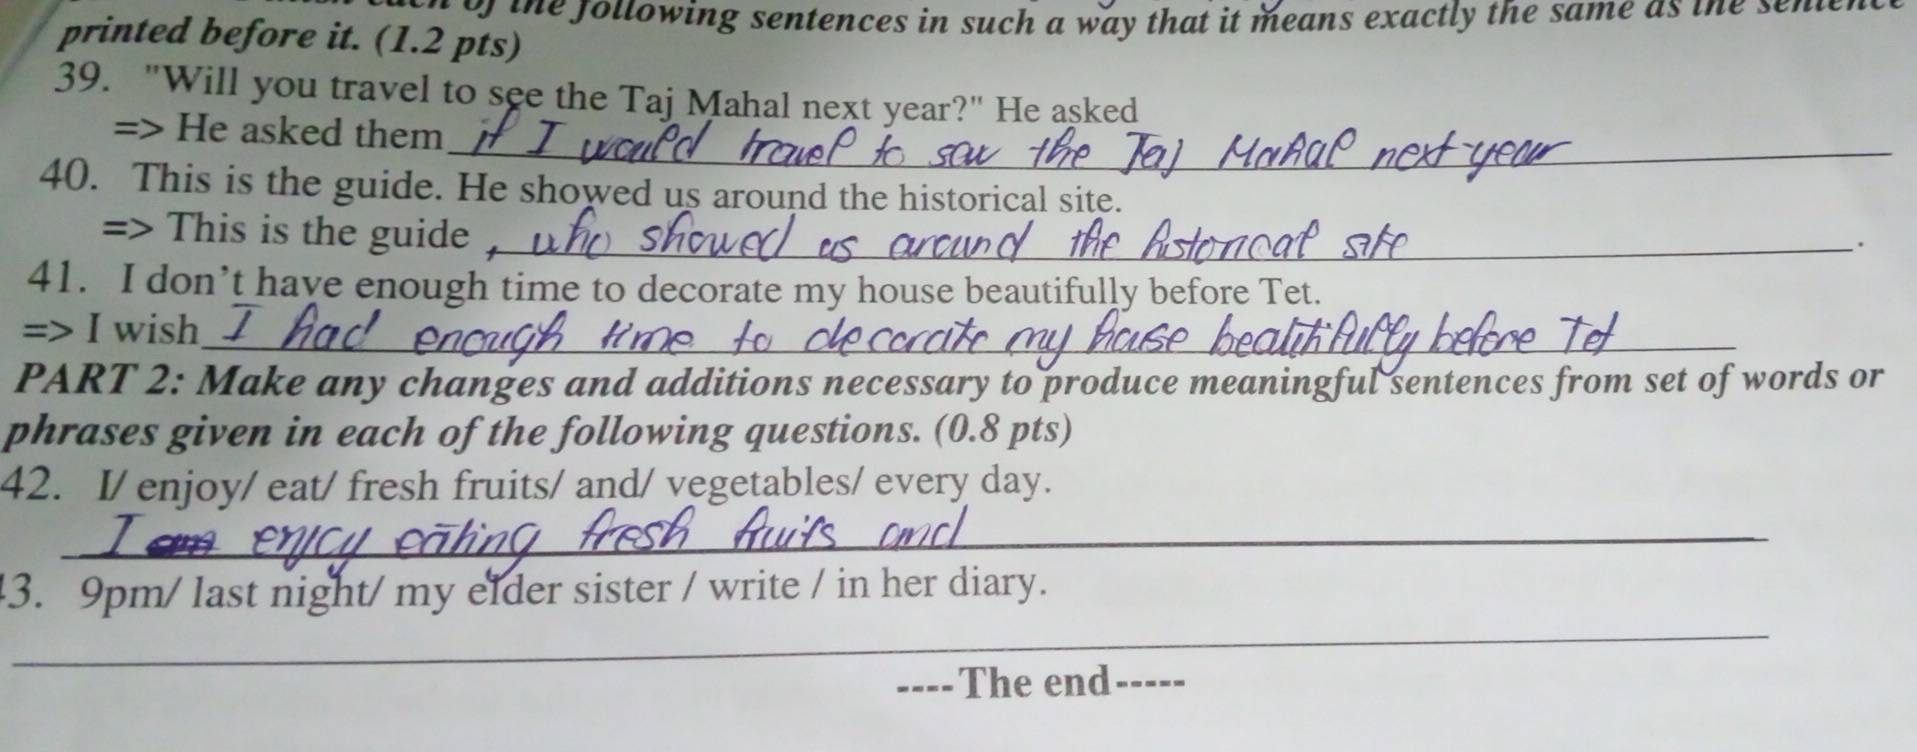 of the following sentences in such a way that it means exactly the same as the sentence
printed before it. (1.2 pts)
39. "Will you travel to see the Taj Mahal next year?" He asked
=> He asked them if I would travel to saw the Taj Mahal next year
40. This is the guide. He showed us around the historical site.
=> This is the guide , who showed us around the historical site .
41. I don't have enough time to decorate my house beautifully before Tet.
=> I wish I had enough time to decorate my house beatitifully before Tet
PART 2: Make any changes and additions necessary to produce meaningful sentences from set of words or
phrases given in each of the following questions. (0.8 pts)
42. I/ enjoy/ eat/ fresh fruits/ and/ vegetables/ every day.
I enjoy eating fresh fruits and
3. 9pm/ last night/ my elder sister / write / in her diary.
----The end-----